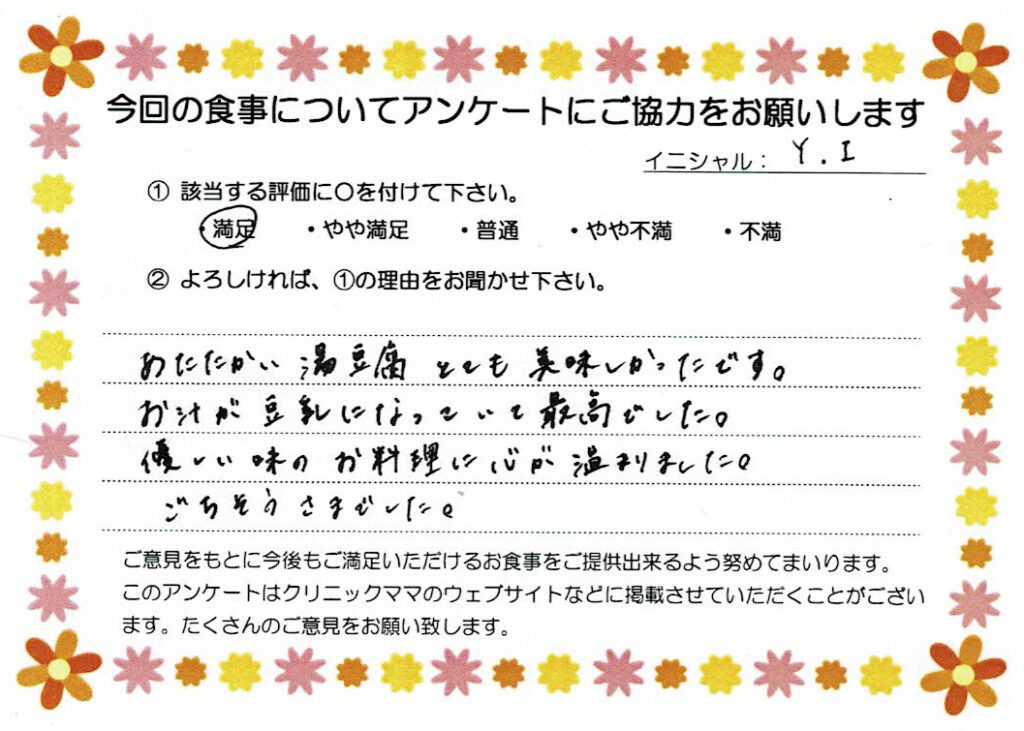 今回の食事についてアンケートにご協力をお願いします
イニシャル： Y.I
① 該当する評価に〇を付けて下さい。
・満足 ・やや満足 ・普通 ・やや不満 ・不満
② よろしければ、①の理由をお聞かせ下さい。
あたたかい 湯豆腐 とても 美味しかったです。
お汁が 豆乳になっていて 最高でした。
優しい 味の お料理に 心が 温まりました。
ごちそうさまでした。
ご意見をもとに今後もご満足いただけるお食事をご提供出来るよう努めてまいります。
このアンケートはクリニックママのウェブサイトなどに掲載させていただくことがござい
ます。たくさんのご意見をお願い致します。